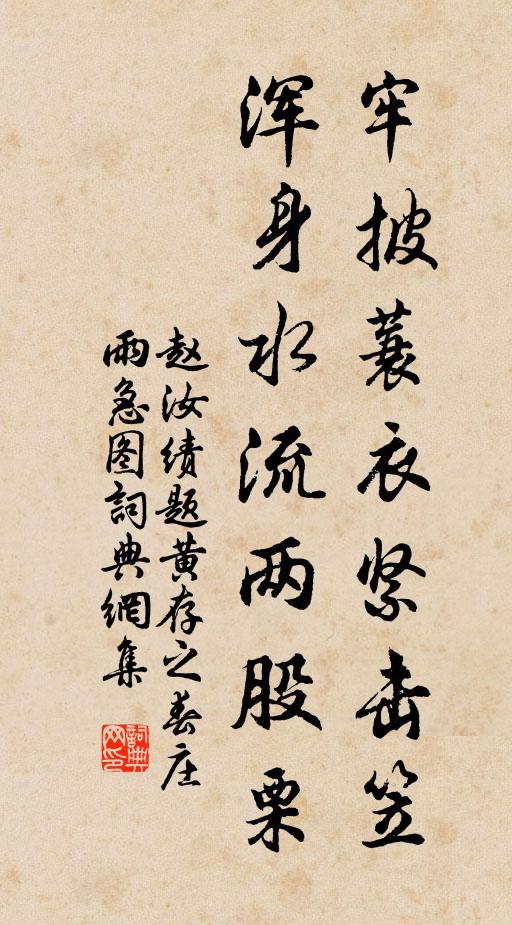 牢披蓑衣紧击笠
浑身水流两股栗
赵汝绩题黄存之春庄
雨急图詞典網集
詞典网印